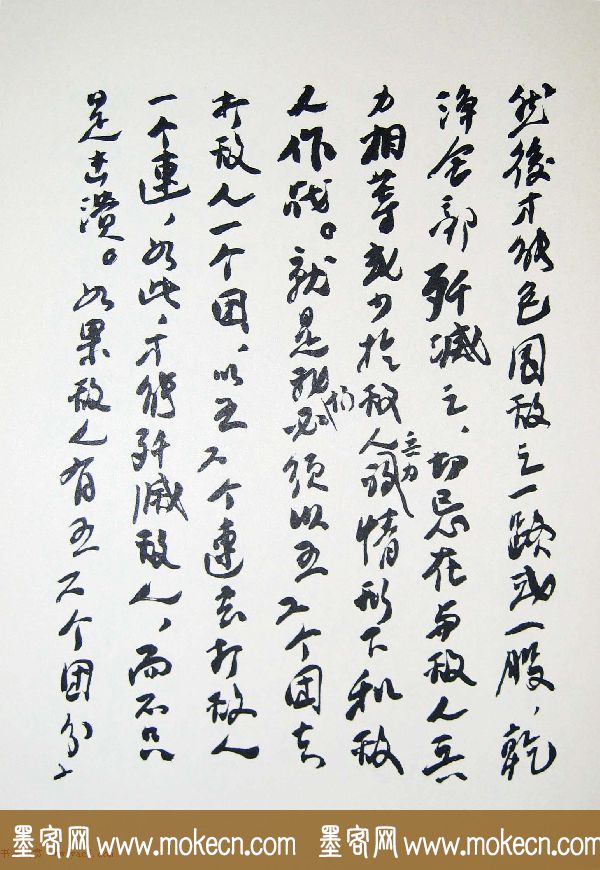 然後才能包围敌之一路或一股，乾
净全部歼滅之，切忌在与敌人兵
力相等或少於敌人兵力情形下和敌
人作战。就是我们必须以五六个团去
打敌人一个团，以五六个連去打敌人
一个連，如此，才能歼滅敌人，而不只
是击溃。如果敌人有五六个团分
墨客网 www.mokecn.com 墨客网 www.mokecn.com